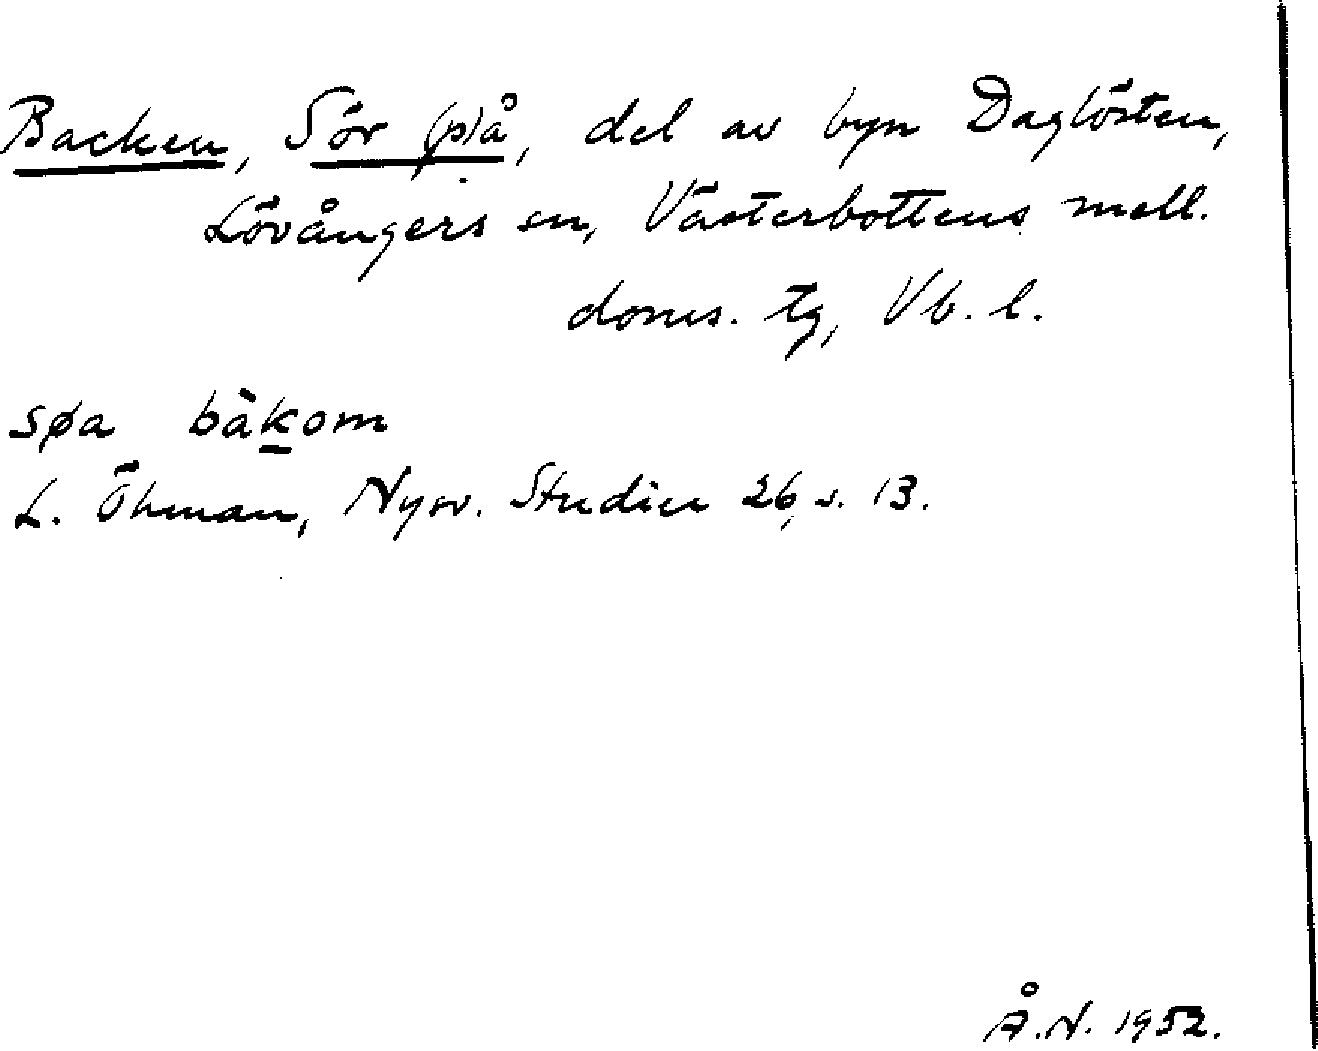 Backen, Sör (p)å, del av byn Daglösten,
Lövångers sn, Västerbottens mell.
doms. tg, Vb. l.
søa bàkom
L. Öhman, Nysv. Studier 26, s. 13.
Å.N. 1952.